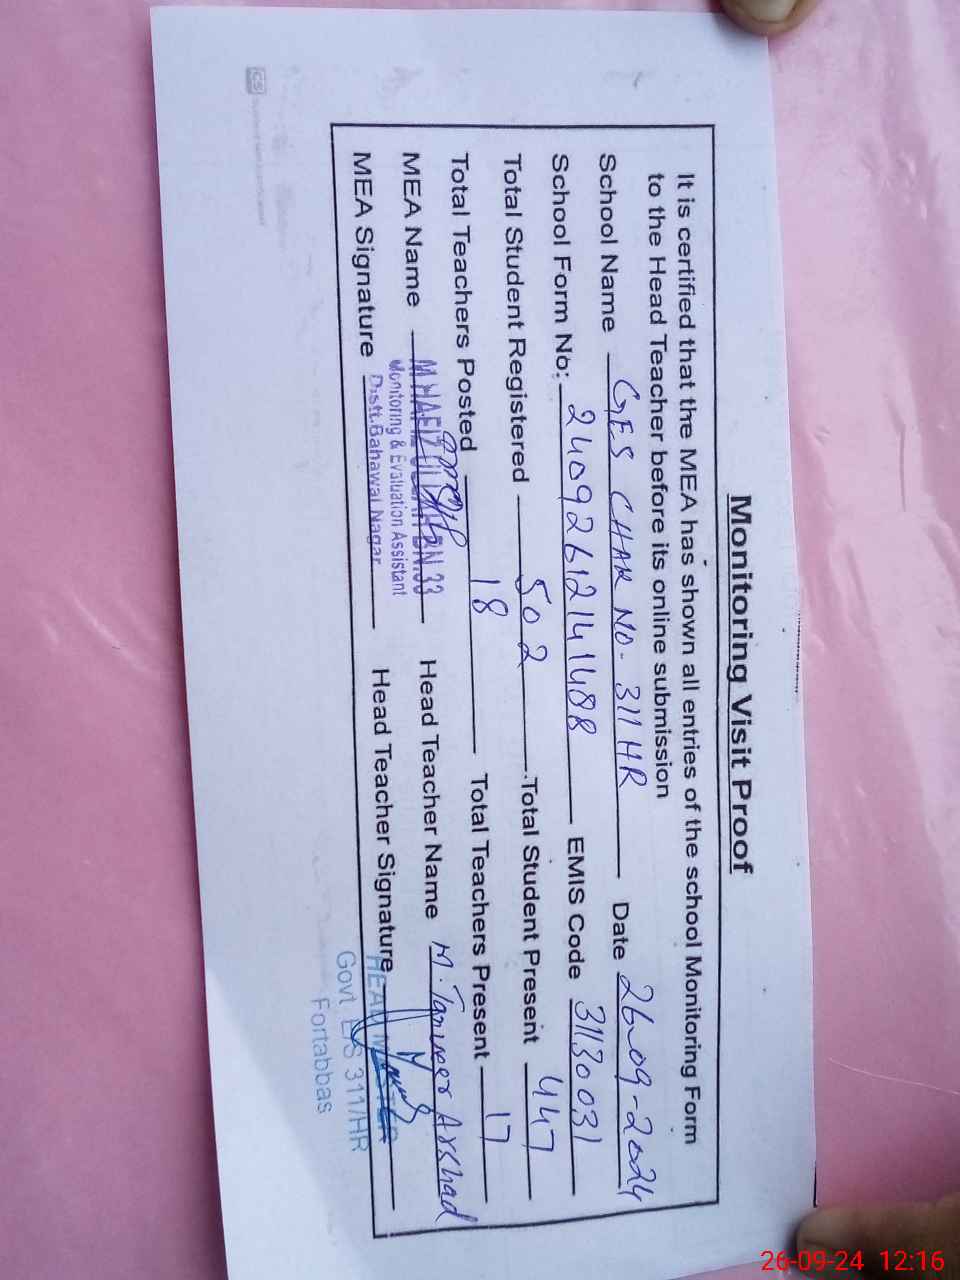 Monitoring Visit Proof
It is certified that the MEA has shown all entries of the school Monitoring Form
to the Head Teacher before its online submission
School Name GES CHAK NO. 311 HR Date 26-09-2024
School Form No: 24092612141488 EMIS Code 31130031
Total Student Registered 502 Total Student Present 447
Total Teachers Posted 18 Total Teachers Present 17
MEA Name Head Teacher Name M. Tanveer Arshad
Monitoring & Evaluation Assistant
MEA Signature Distt.Bahawal Nagar Head Teacher Signature
HEAD MASTER
Govt E/S 311/HR
Fortabbas
CS
26-09-24 12:16